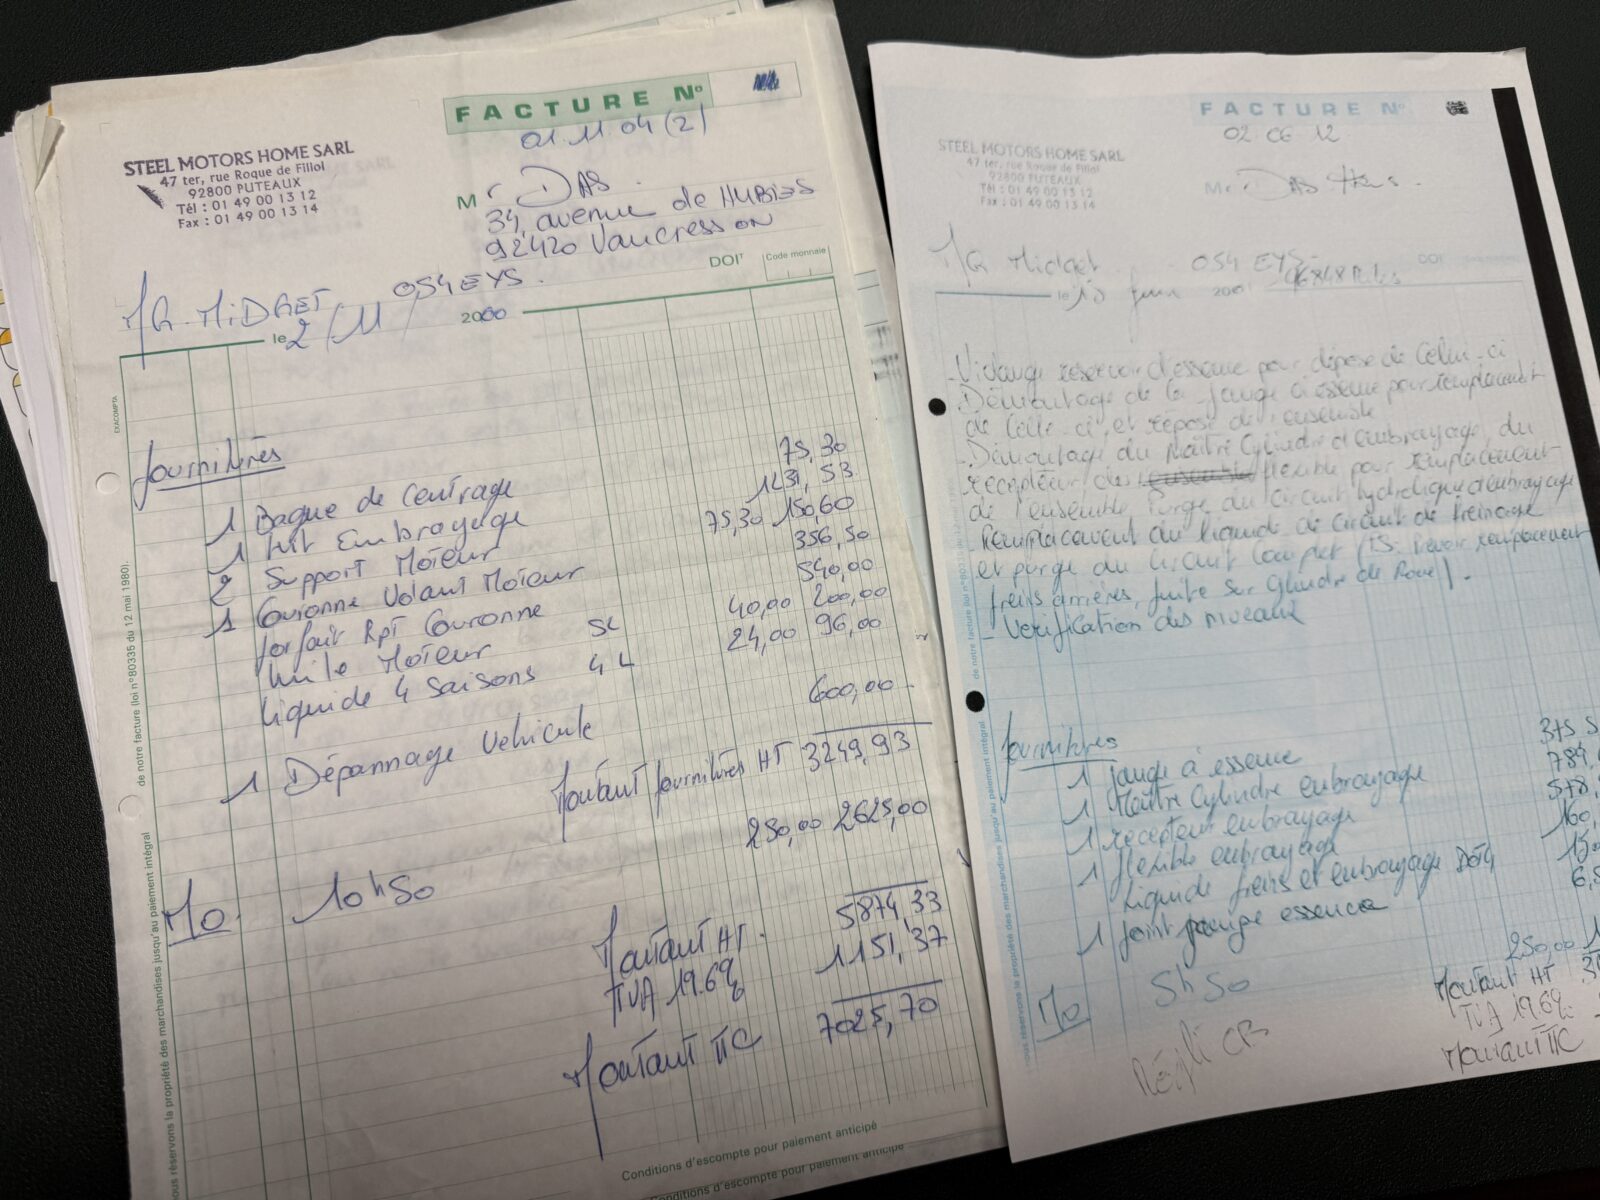 FACTURE N°
01.11.04 (2)
STEEL MOTORS HOME SARL
47 ter, rue Roque de Fillol
92800 PUTEAUX
Tél : 01 49 00 13 12
Fax : 01 49 00 13 14
Mr DAS.
34, avenue de HUBIES
92420 Vaucresson
DOIT
Code monnaie
MG. MiDGET 054 EYS.
le 2/11/ 2000
EXACOMPTA
fournitures
1 Bague de Centrage 75,30
1 kit Embrayage 1231,53
2 Support Moteur 75,30 150,60
1 Couronne Volant Moteur 356,50
forfait Rpt Couronne 540,00
huile Moteur 5L 40,00 200,00
liquide 4 Saisons 4L 24,00 96,00
1 Dépannage Vehicule 600,00
Montant fournitures HT 3249,93
MO. 10h50 250,00 2625,00
Montant HT. 5874,33
TVA 19.6% 1151,37
Montant TTC 7025,70
Conditions d'escompte pour paiement anticipé
Conditions d'escompte pour paiement anticipé
nous réservons la propriété des marchandises jusqu'au paiement intégral
de notre facture (loi n°80335 du 12 mai 1980).
FACTURE N°
02 06 12
STEEL MOTORS HOME SARL
47 ter, rue Roque de Fillol
92800 PUTEAUX
Tél : 01 49 00 13 12
Fax : 01 49 00 13 14
Mr DAS
MG Midget. 054 EYS.
DOIT
le 13 juin 2001
- Vidange réservoir d'essence pour dépose de Celui-ci
- Démontage de la jauge à essence pour remplacement
de celle-ci, et repose de l'ensemble
- Démontage du Maître Cylindre d'embrayage, du
récepteur du flexible pour remplacement
de l'ensemble. Purge du circuit hydrolique d'embrayage
- Remplacement du liquide de circuit de freinage
et purge du circuit complet remplacement
freins arrières, fuite sur Cylindre de Roue).
- Vérification des niveaux
fournitures
1 jauge à essence 375
1 Maître Cylindre embrayage 784,
1 récepteur embrayage 578,
1 flexible embrayage 160,
liquide freins et embrayage DOT4
1 joint pompe essence 6,
MO 5h50 250,00
Montant HT
TVA 19.6%
Montant TTC
Réglé CB
nous réservons la propriété des marchandises jusqu'au paiement intégral